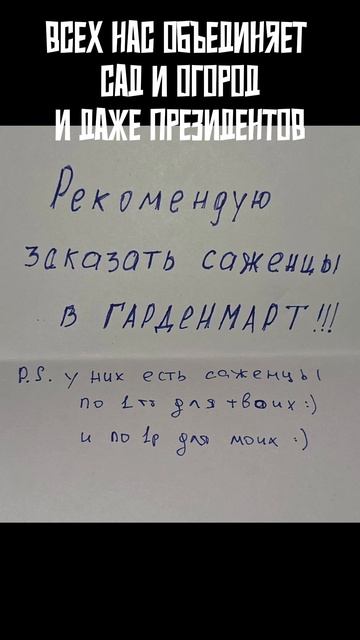 ВСЕХ НАС ОБЪЕДИНЯЕТ
САД И ОГОРОД
И ДАЖЕ ПРЕЗИДЕНТОВ
Рекомендую
заказать саженцы
в ГАРДЕНМАРТ!!!
P.S. у них есть саженцы
по 1тр для твоих :)
и по 1р для моих :)